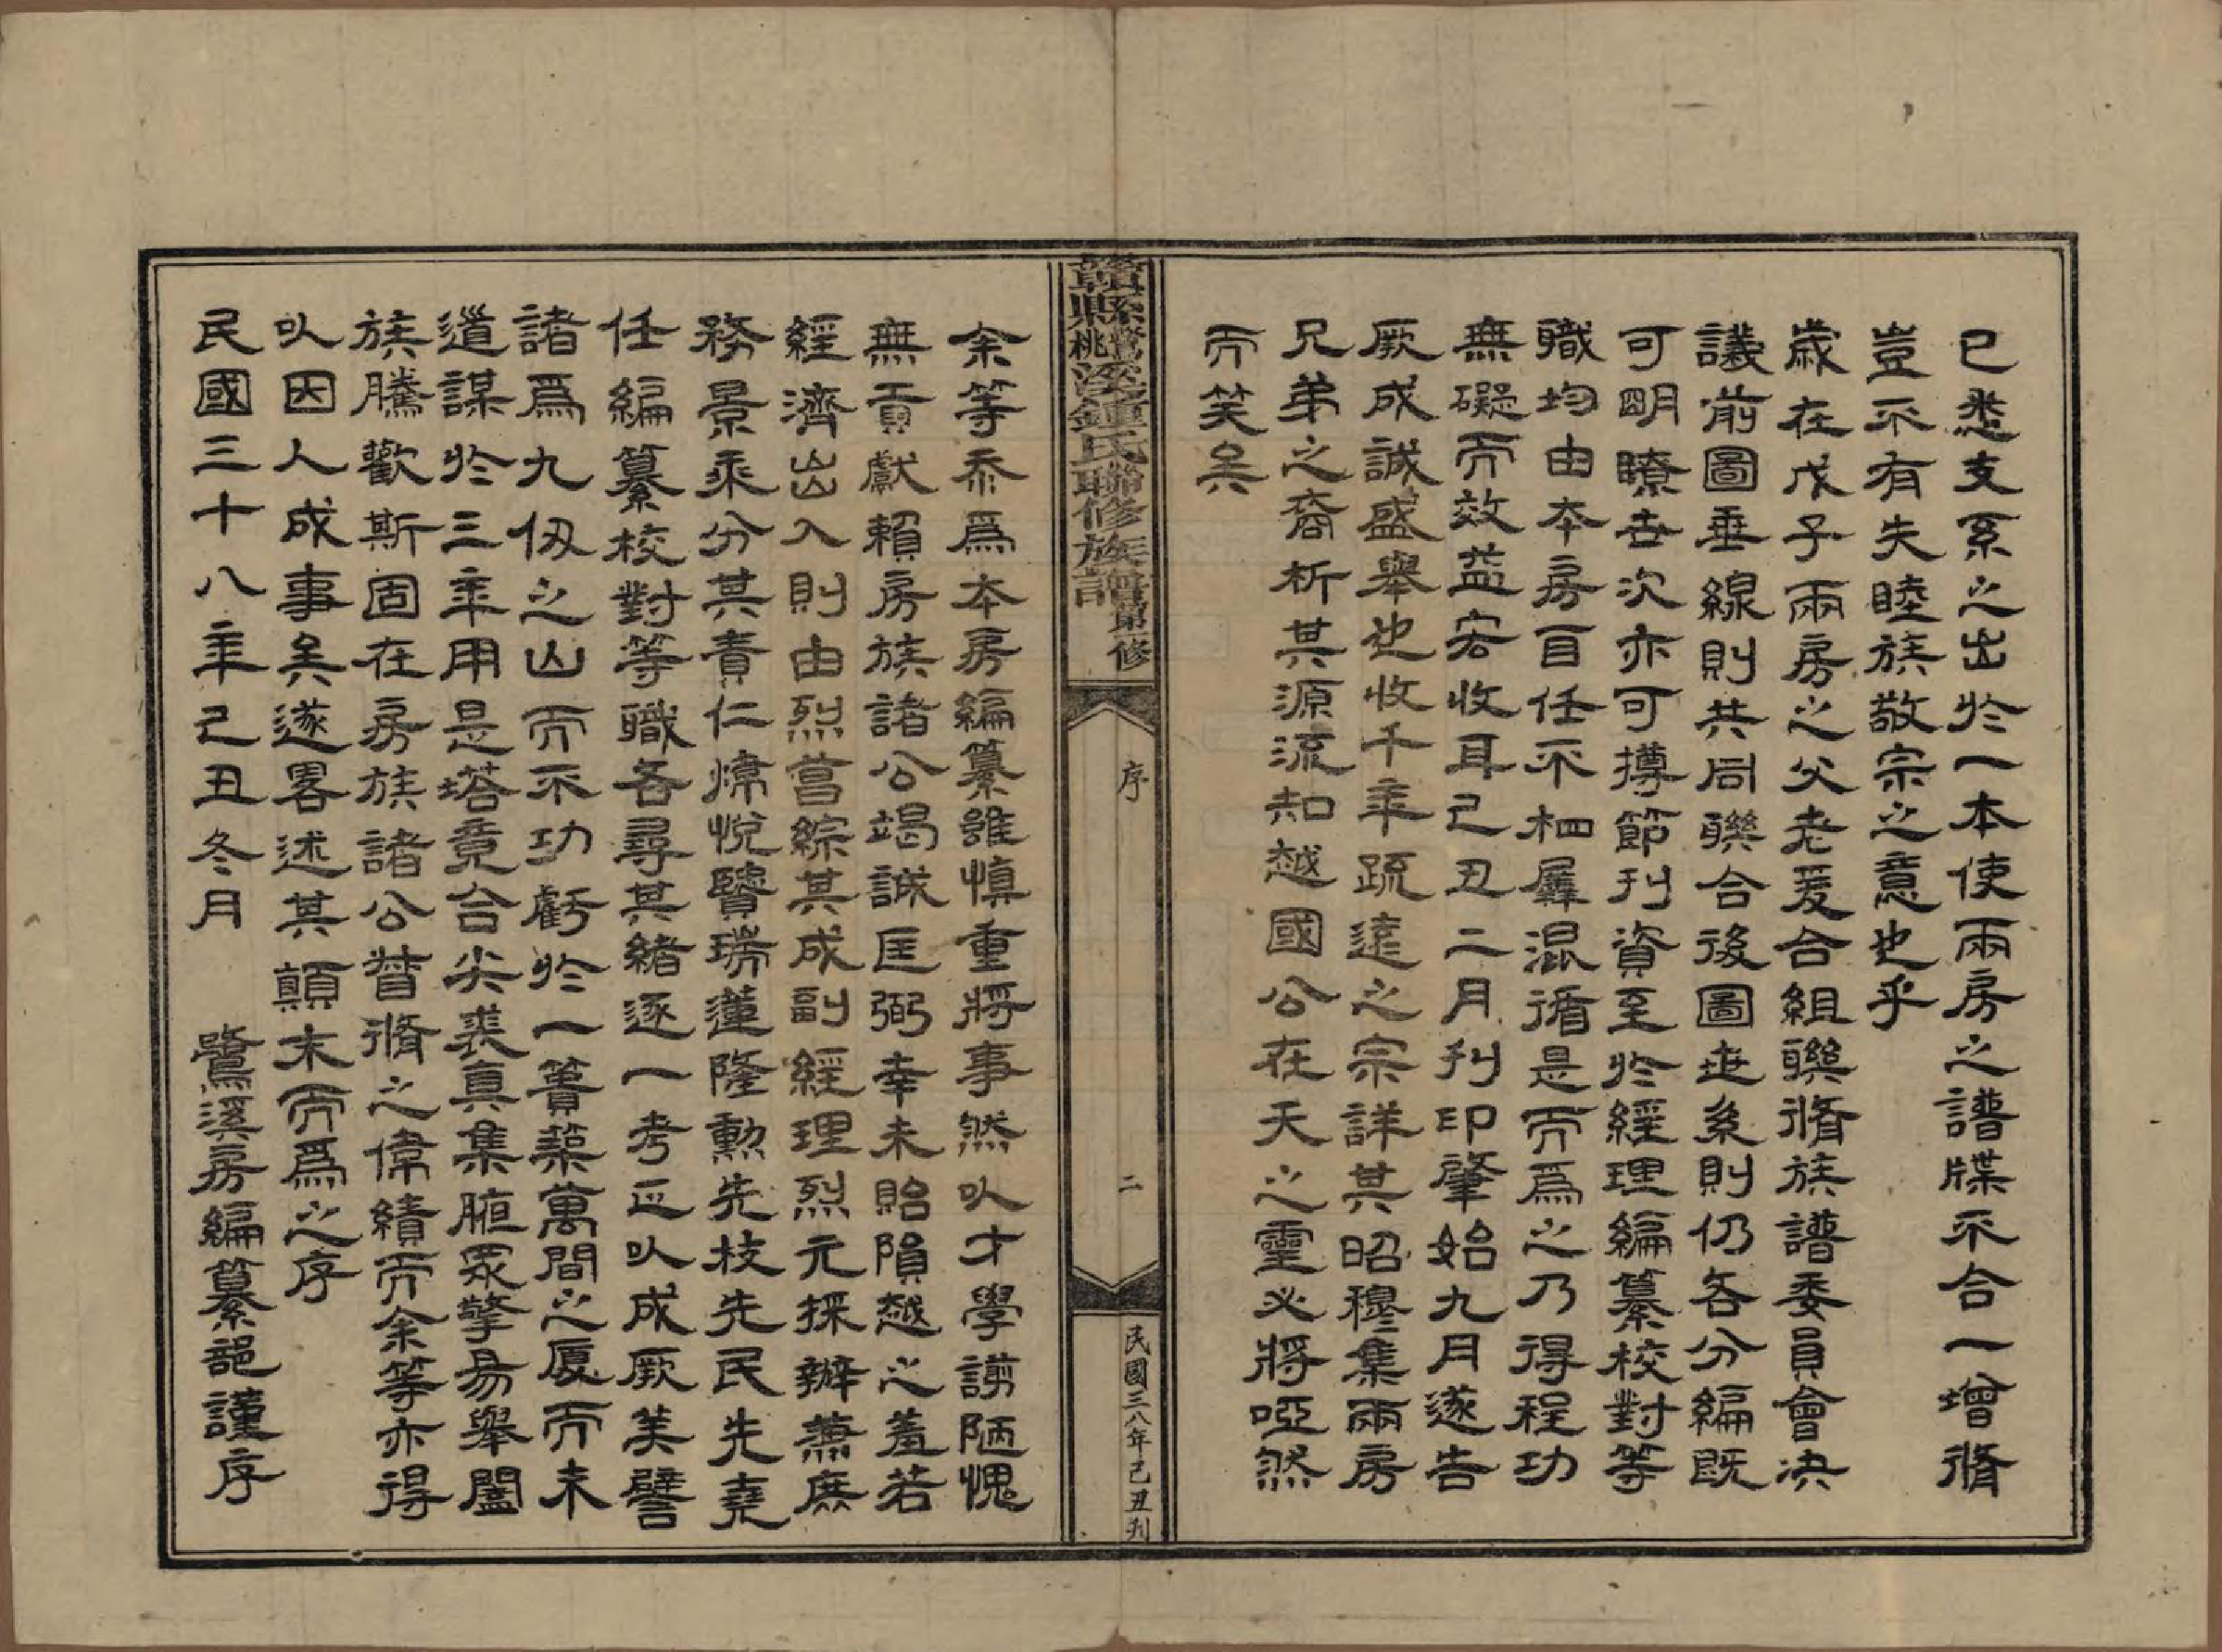 已悉支系之出於一本使兩房之譜牒不合一增脩
豈不有失睦族敬宗之意也乎
歲在戊子兩房之父老爰合組聯脩族譜委員會决
議前圖垂線則共同聯合後圖世系則仍各分編既
可明瞭世次亦可撙節刋資至於經理編纂校對等
職均由本房自任不相羼混循是而爲之乃得程功
無礙而效益宏收耳己丑二月刋印肇始九月遂告
厥成誠盛舉也收千年疏遠之宗詳其昭穆集兩房
兄弟之裔析其源流知越國公在天之靈必將啞然
而笑矣
贛縣鷺桃溪鍾氏聯修族譜第一修
序
二
民國三八年己丑刋
余等忝爲本房編纂雖慎重將事然以才學譾陋愧
無貢獻賴房族諸公竭誠匡弼幸未貽隕越之羞若
經濟出入則由烈菖綜其成副經理烈元採辦蕭庶
務景乘分其責仁煒悅贒瑞蓮隆勳先技先民先堯
任編纂校對等職各尋其緒逐一考正以成厥美譬
諸爲九仭之山而不功虧於一簣築萬間之厦而未
道謀於三年用是塔竟合尖裘真集腋眾擎易舉闔
族騰歡斯固在房族諸公贊脩之偉績而余等亦得
以因人成事矣遂畧述其顛末而爲之序
民國三十八年己丑冬月　鷺溪房編纂䛩謹序